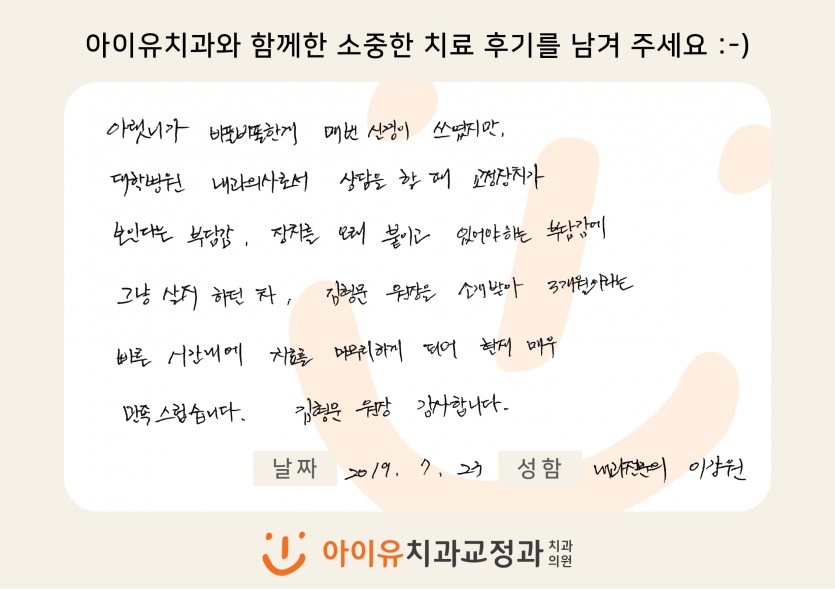 아이유치과와 함께한 소중한 치료 후기를 남겨 주세요 :-)
아랫니가 삐뚤삐뚤한게 매번 신경이 쓰였지만,
대학병원 내과의사로서 상담을 할 때 교정장치가
보인다는 부담감, 장치를 오래 붙이고 있어야하는 부담감에
그냥 살지 하던 차, 김형문 원장을 소개받아 3개월이라는
빠른 시간내에 치료를 마무리하게 되어 현재 매우
만족스럽습니다. 김형문 원장 감사합니다.
날짜 2019. 7. 23 성함 내과전문의 이강원
아이유치과교정과 치과의원